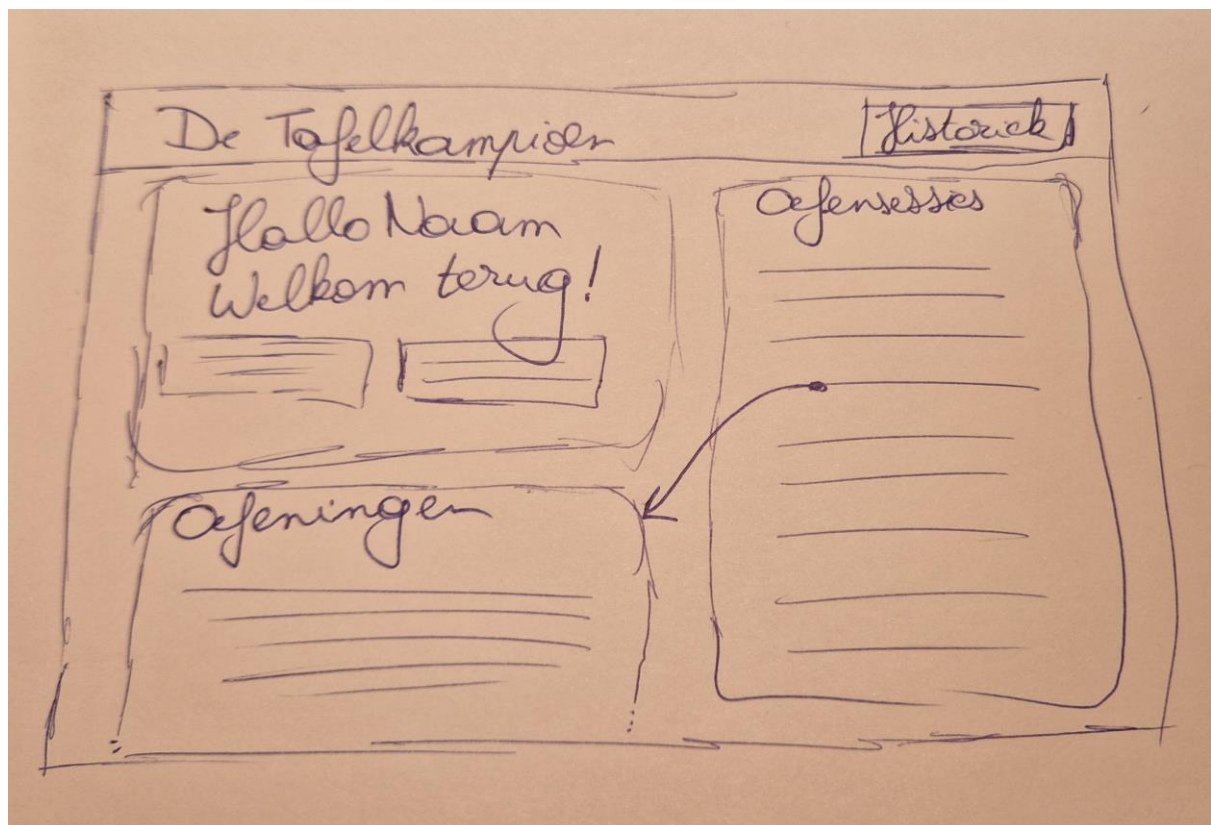 De Tafelkampioen
Historiek
Hallo Naam
Welkom terug!
Oefensessies
Oefeningen